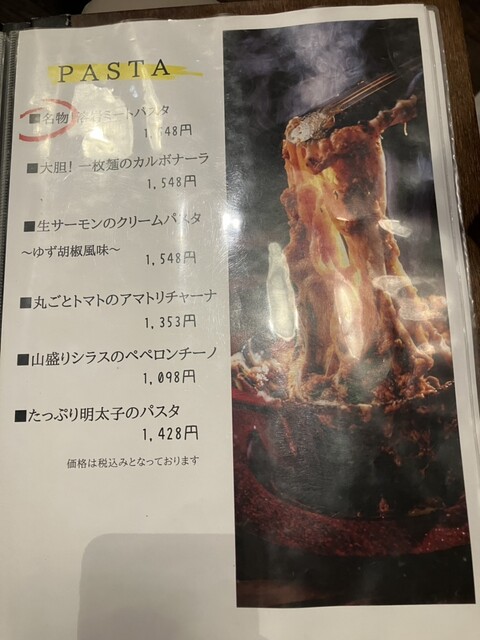 PASTA
■名物!溶岩ミートパスタ
1,548円
■大胆!一枚麺のカルボナーラ
1,548円
■生サーモンのクリームパスタ
~ゆず胡椒風味~
1,548円
■丸ごとトマトのアマトリチャーナ
1,353円
■山盛りシラスのペペロンチーノ
1,098円
■たっぷり明太子のパスタ
1,428円
価格は税込みとなっております